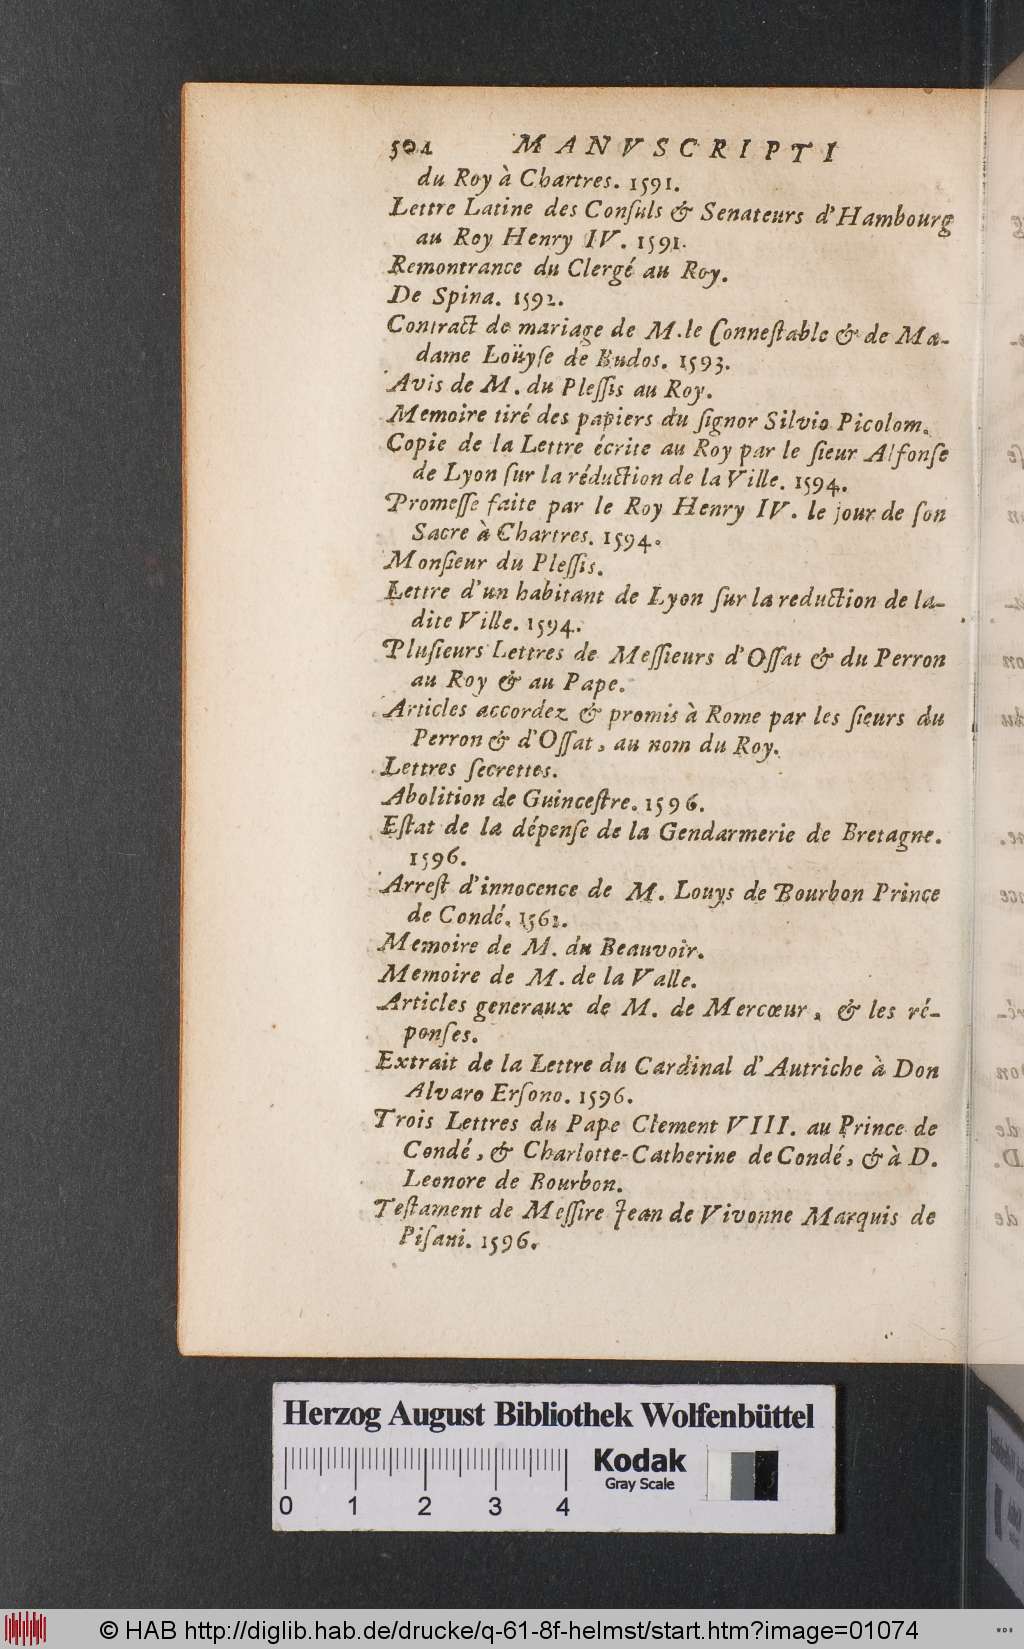 504 MANVSCRIPTI
du Roy à Chartres. 1591.
Lettre Latine des Conſuls & Senateurs d'Hambourg
au Roy Henry IV. 1591.
Remontrance du Clergé au Roy.
De Spina. 1592.
Contract de mariage de M. le Conneſtable & de Ma-
dame Loüyſe de Budos. 1593.
Avis de M. du Pleſſis au Roy.
Memoire tiré des papiers du ſignor Silvio Picolom.
Copie de la Lettre écrite au Roy par le ſieur Alfonſe
de Lyon ſur la réduction de la Ville. 1594.
Promeſſe faite par le Roy Henry IV. le jour de ſon
Sacre à Chartres. 1594.
Monſieur du Pleſſis.
Lettre d'un habitant de Lyon ſur la reduction de la-
dite Ville. 1594.
Pluſieurs Lettres de Meſſieurs d'Oſſat & du Perron
au Roy & au Pape.
Articles accordez & promis à Rome par les ſieurs du
Perron & d'Oſſat, au nom du Roy.
Lettres ſecrettes.
Abolition de Guinceſtre. 1596.
Eſtat de la dépenſe de la Gendarmerie de Bretagne.
1596.
Arreſt d'innocence de M. Louys de Bourbon Prince
de Condé. 1561.
Memoire de M. du Beauvoir.
Memoire de M. de la Valle.
Articles generaux de M. de Mercœur, & les ré-
ponſes.
Extrait de la Lettre du Cardinal d'Autriche à Don
Alvaro Erſono. 1596.
Trois Lettres du Pape Clement VIII. au Prince de
Condé, & Charlotte-Catherine de Condé, & à D.
Leonore de Bourbon.
Teſtament de Meſſire Jean de Vivonne Marquis de
Piſani. 1596.
Herzog August Bibliothek Wolfenbüttel
Kodak
Gray Scale
0 1 2 3 4
© HAB http://diglib.hab.de/drucke/q-61-8f-helmst/start.htm?image=01074